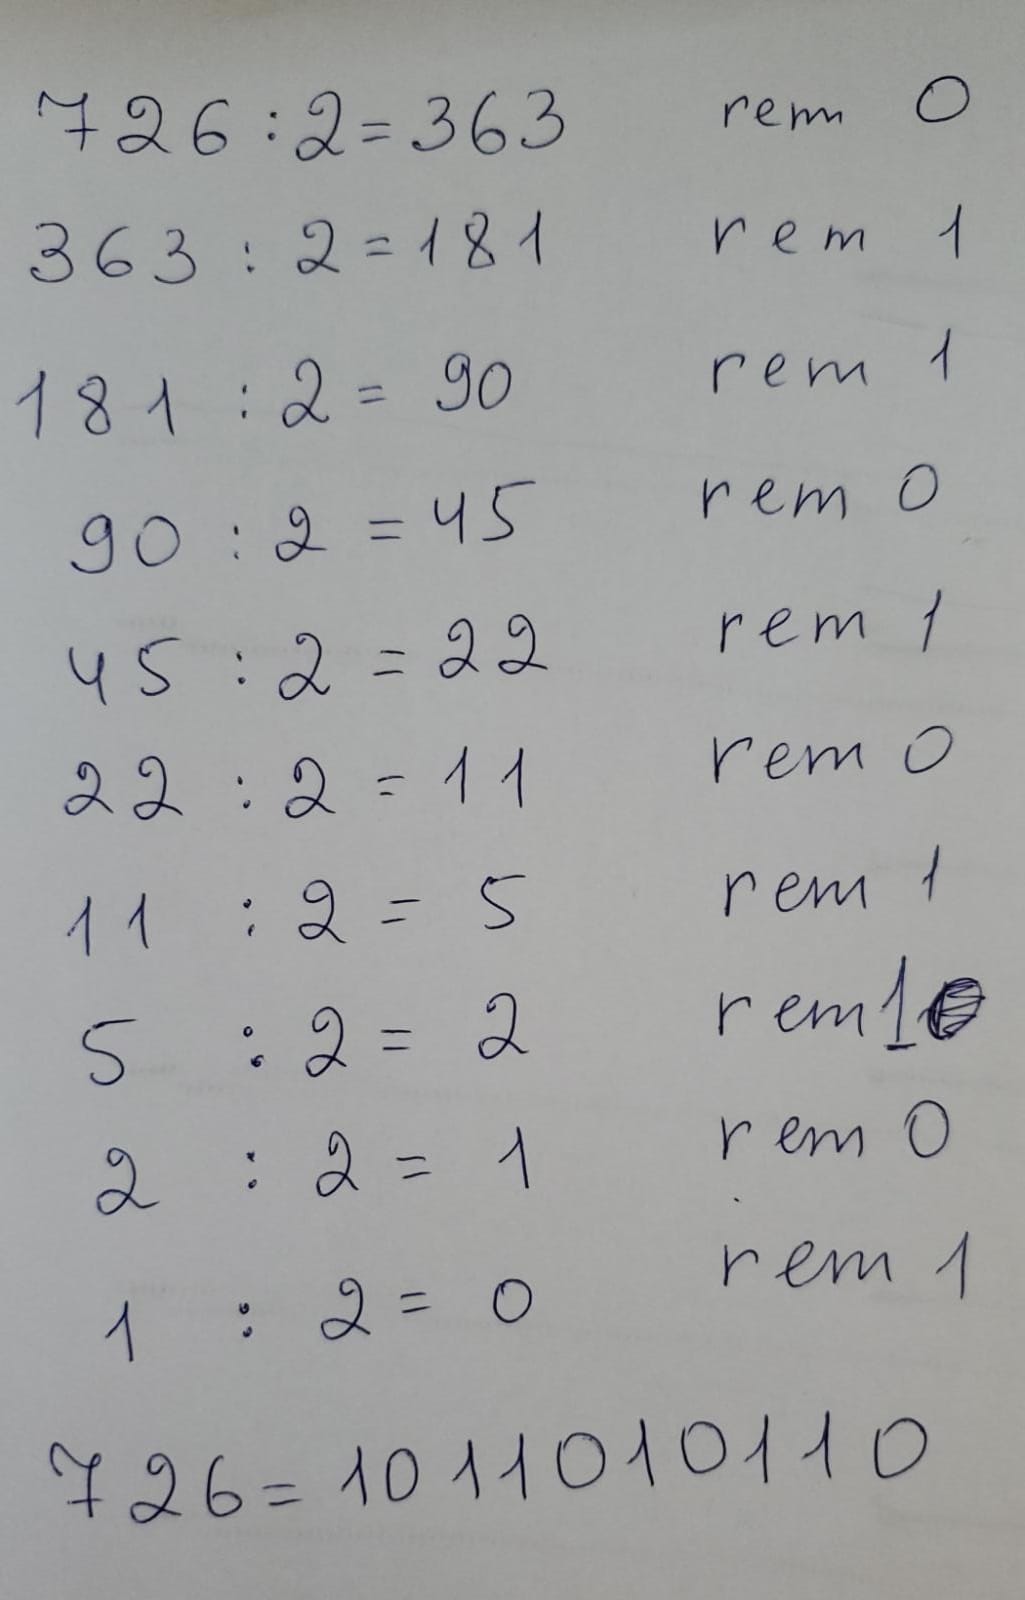 726 : 2 = 363 rem 0
363 : 2 = 181 rem 1
181 : 2 = 90 rem 1
90 : 2 = 45 rem 0
45 : 2 = 22 rem 1
22 : 2 = 11 rem 0
11 : 2 = 5 rem 1
5 : 2 = 2 rem 1
2 : 2 = 1 rem 0
1 : 2 = 0 rem 1
726 = 1011010110